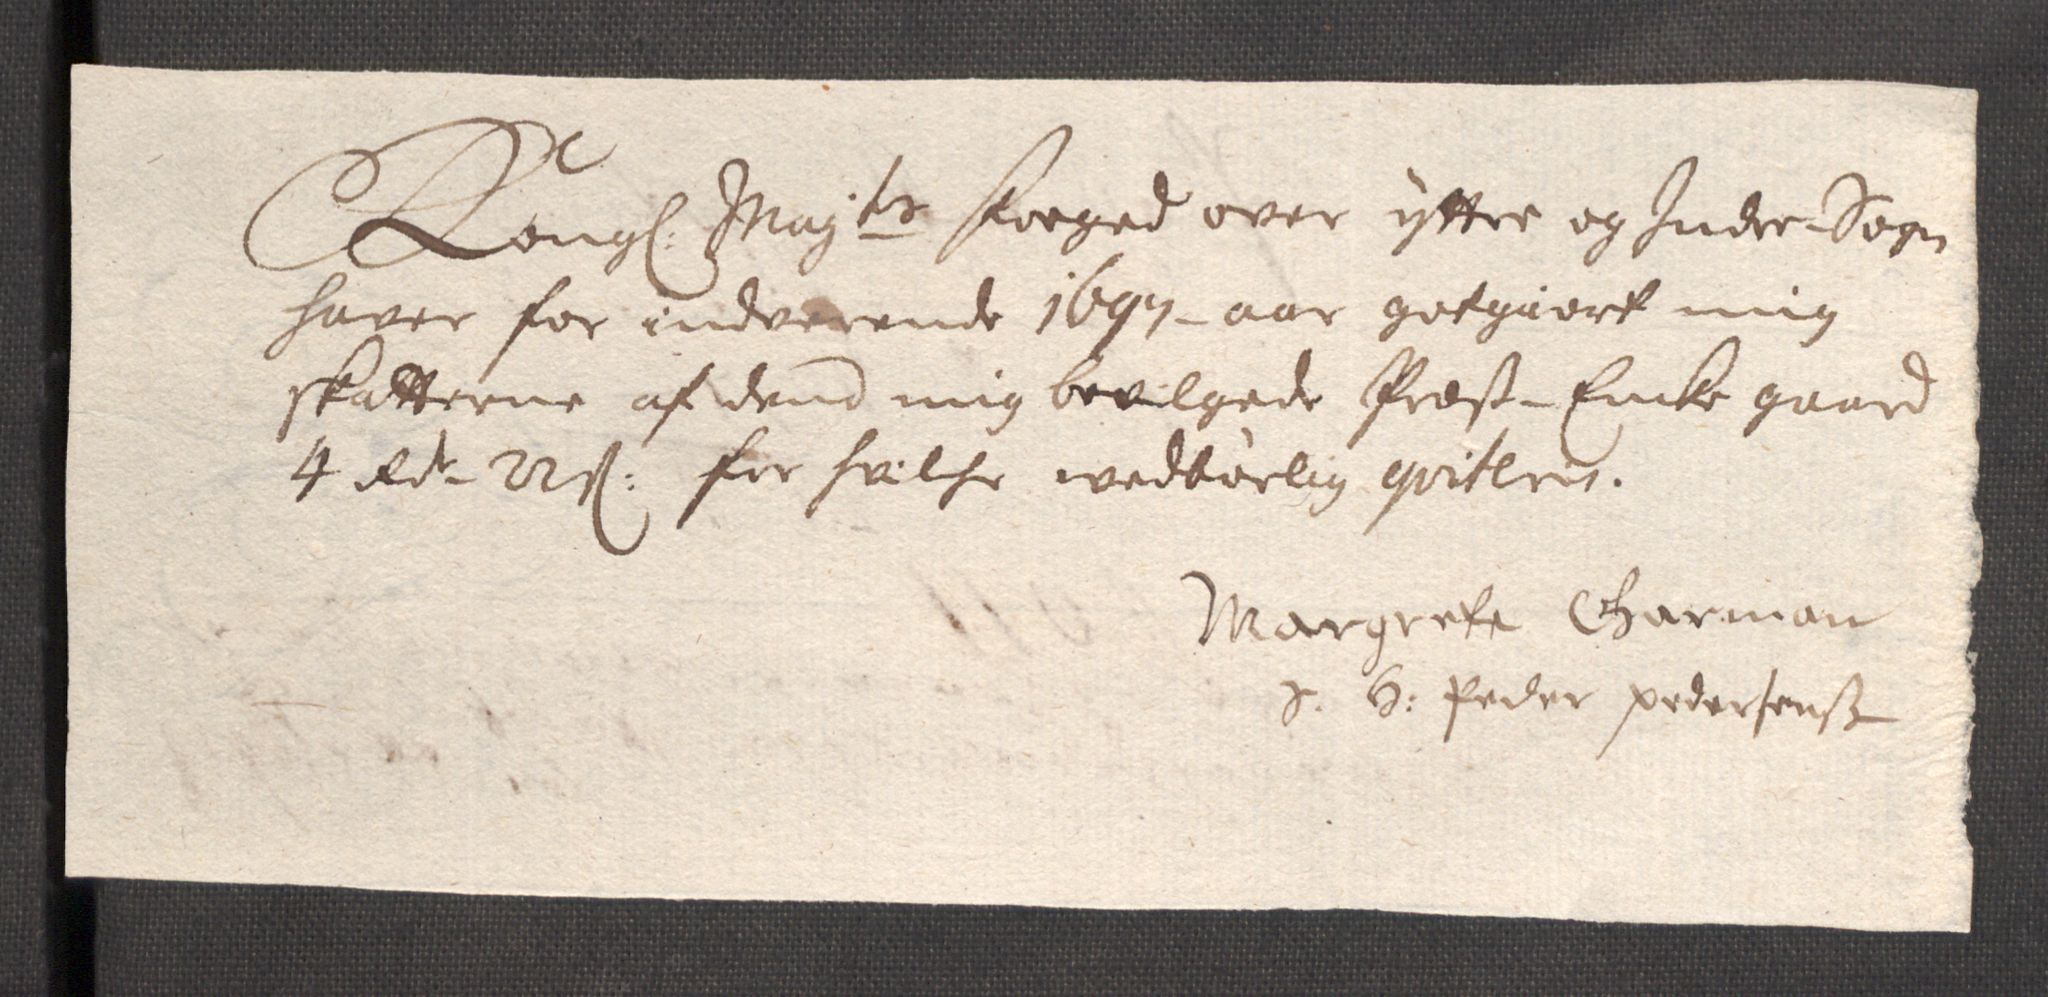 Kongl: Mayts foeged over ytter og Inder-Sogn
haver for indverende 1697 aar gotgiort mig
skatterne af dend mig bevilgede Præst-Encke gaard
4 Rdr 22 s: for hvilche wedbørlig qvitteris.
Margrete Garman
S. H: Peder pedersenss